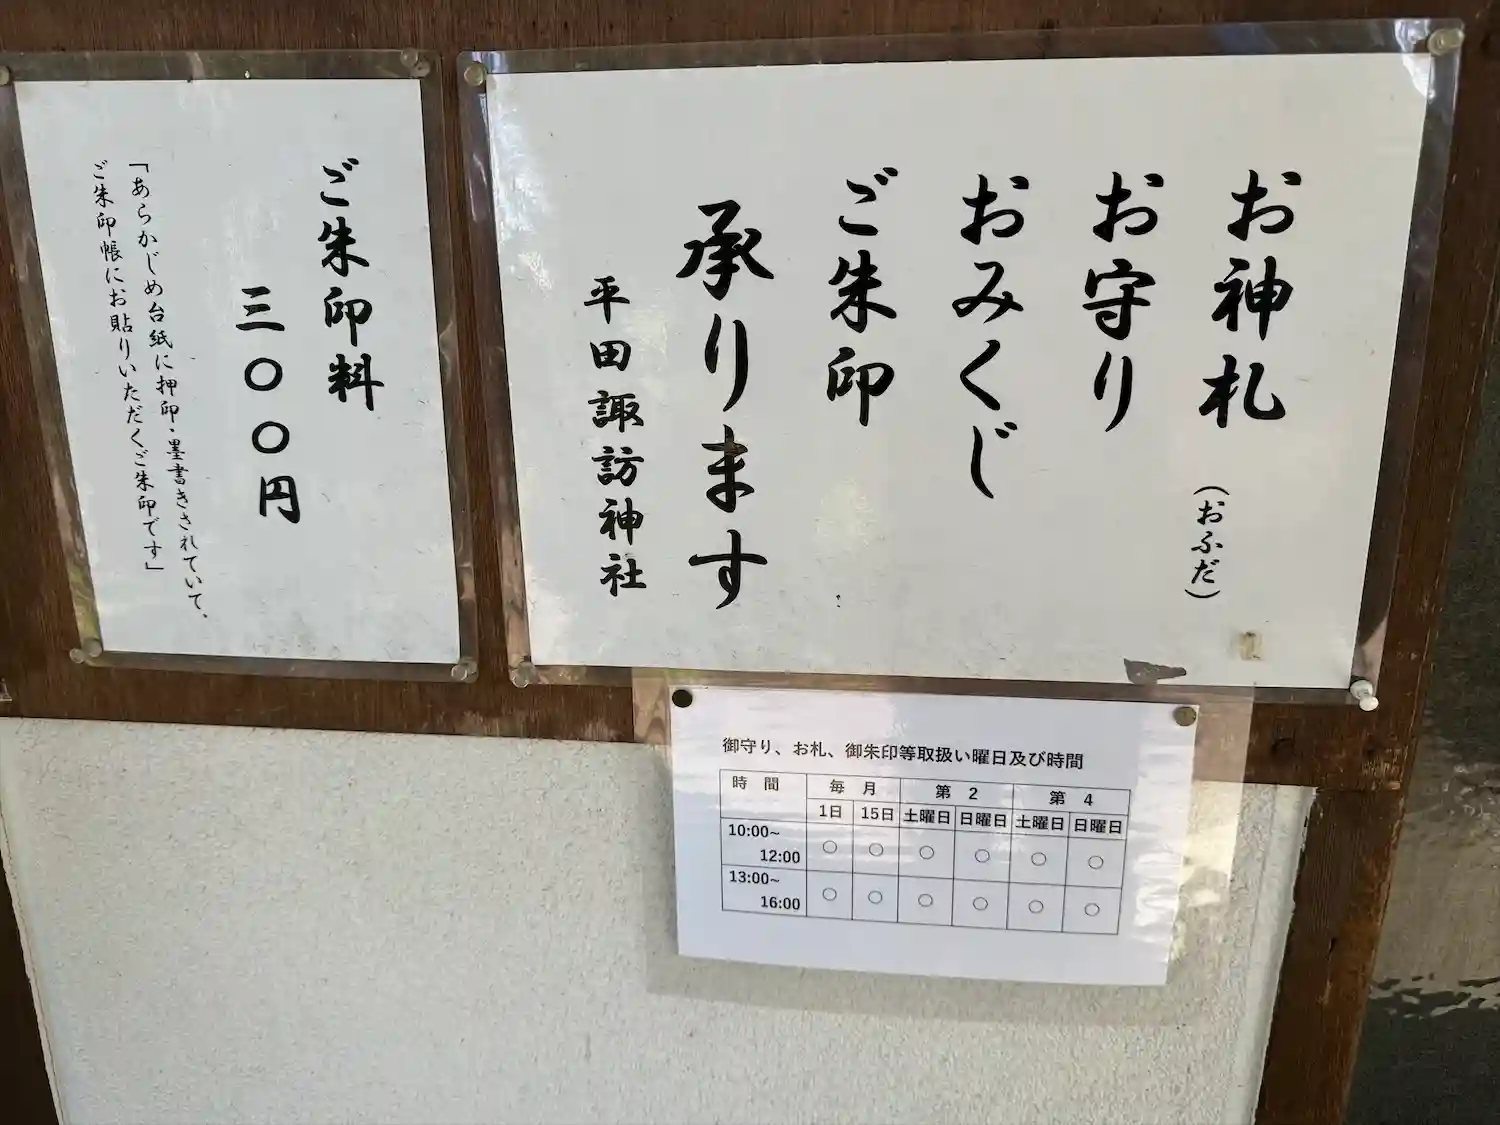 お神札(おふだ)
お守り
おみくじ
ご朱印
承ります
平田諏訪神社
ご朱印料
三〇〇円
「あらかじめ台紙に押印・墨書きされていて、
ご朱印帳にお貼りいただくご朱印です」
御守り、お札、御朱印等取扱い曜日及び時間
時 間 毎 月 第 2 第 4
1日 15日 土曜日 日曜日 土曜日 日曜日
10:00~
12:00 ○ ○ ○ ○ ○ ○
13:00~
16:00 ○ ○ ○ ○ ○ ○